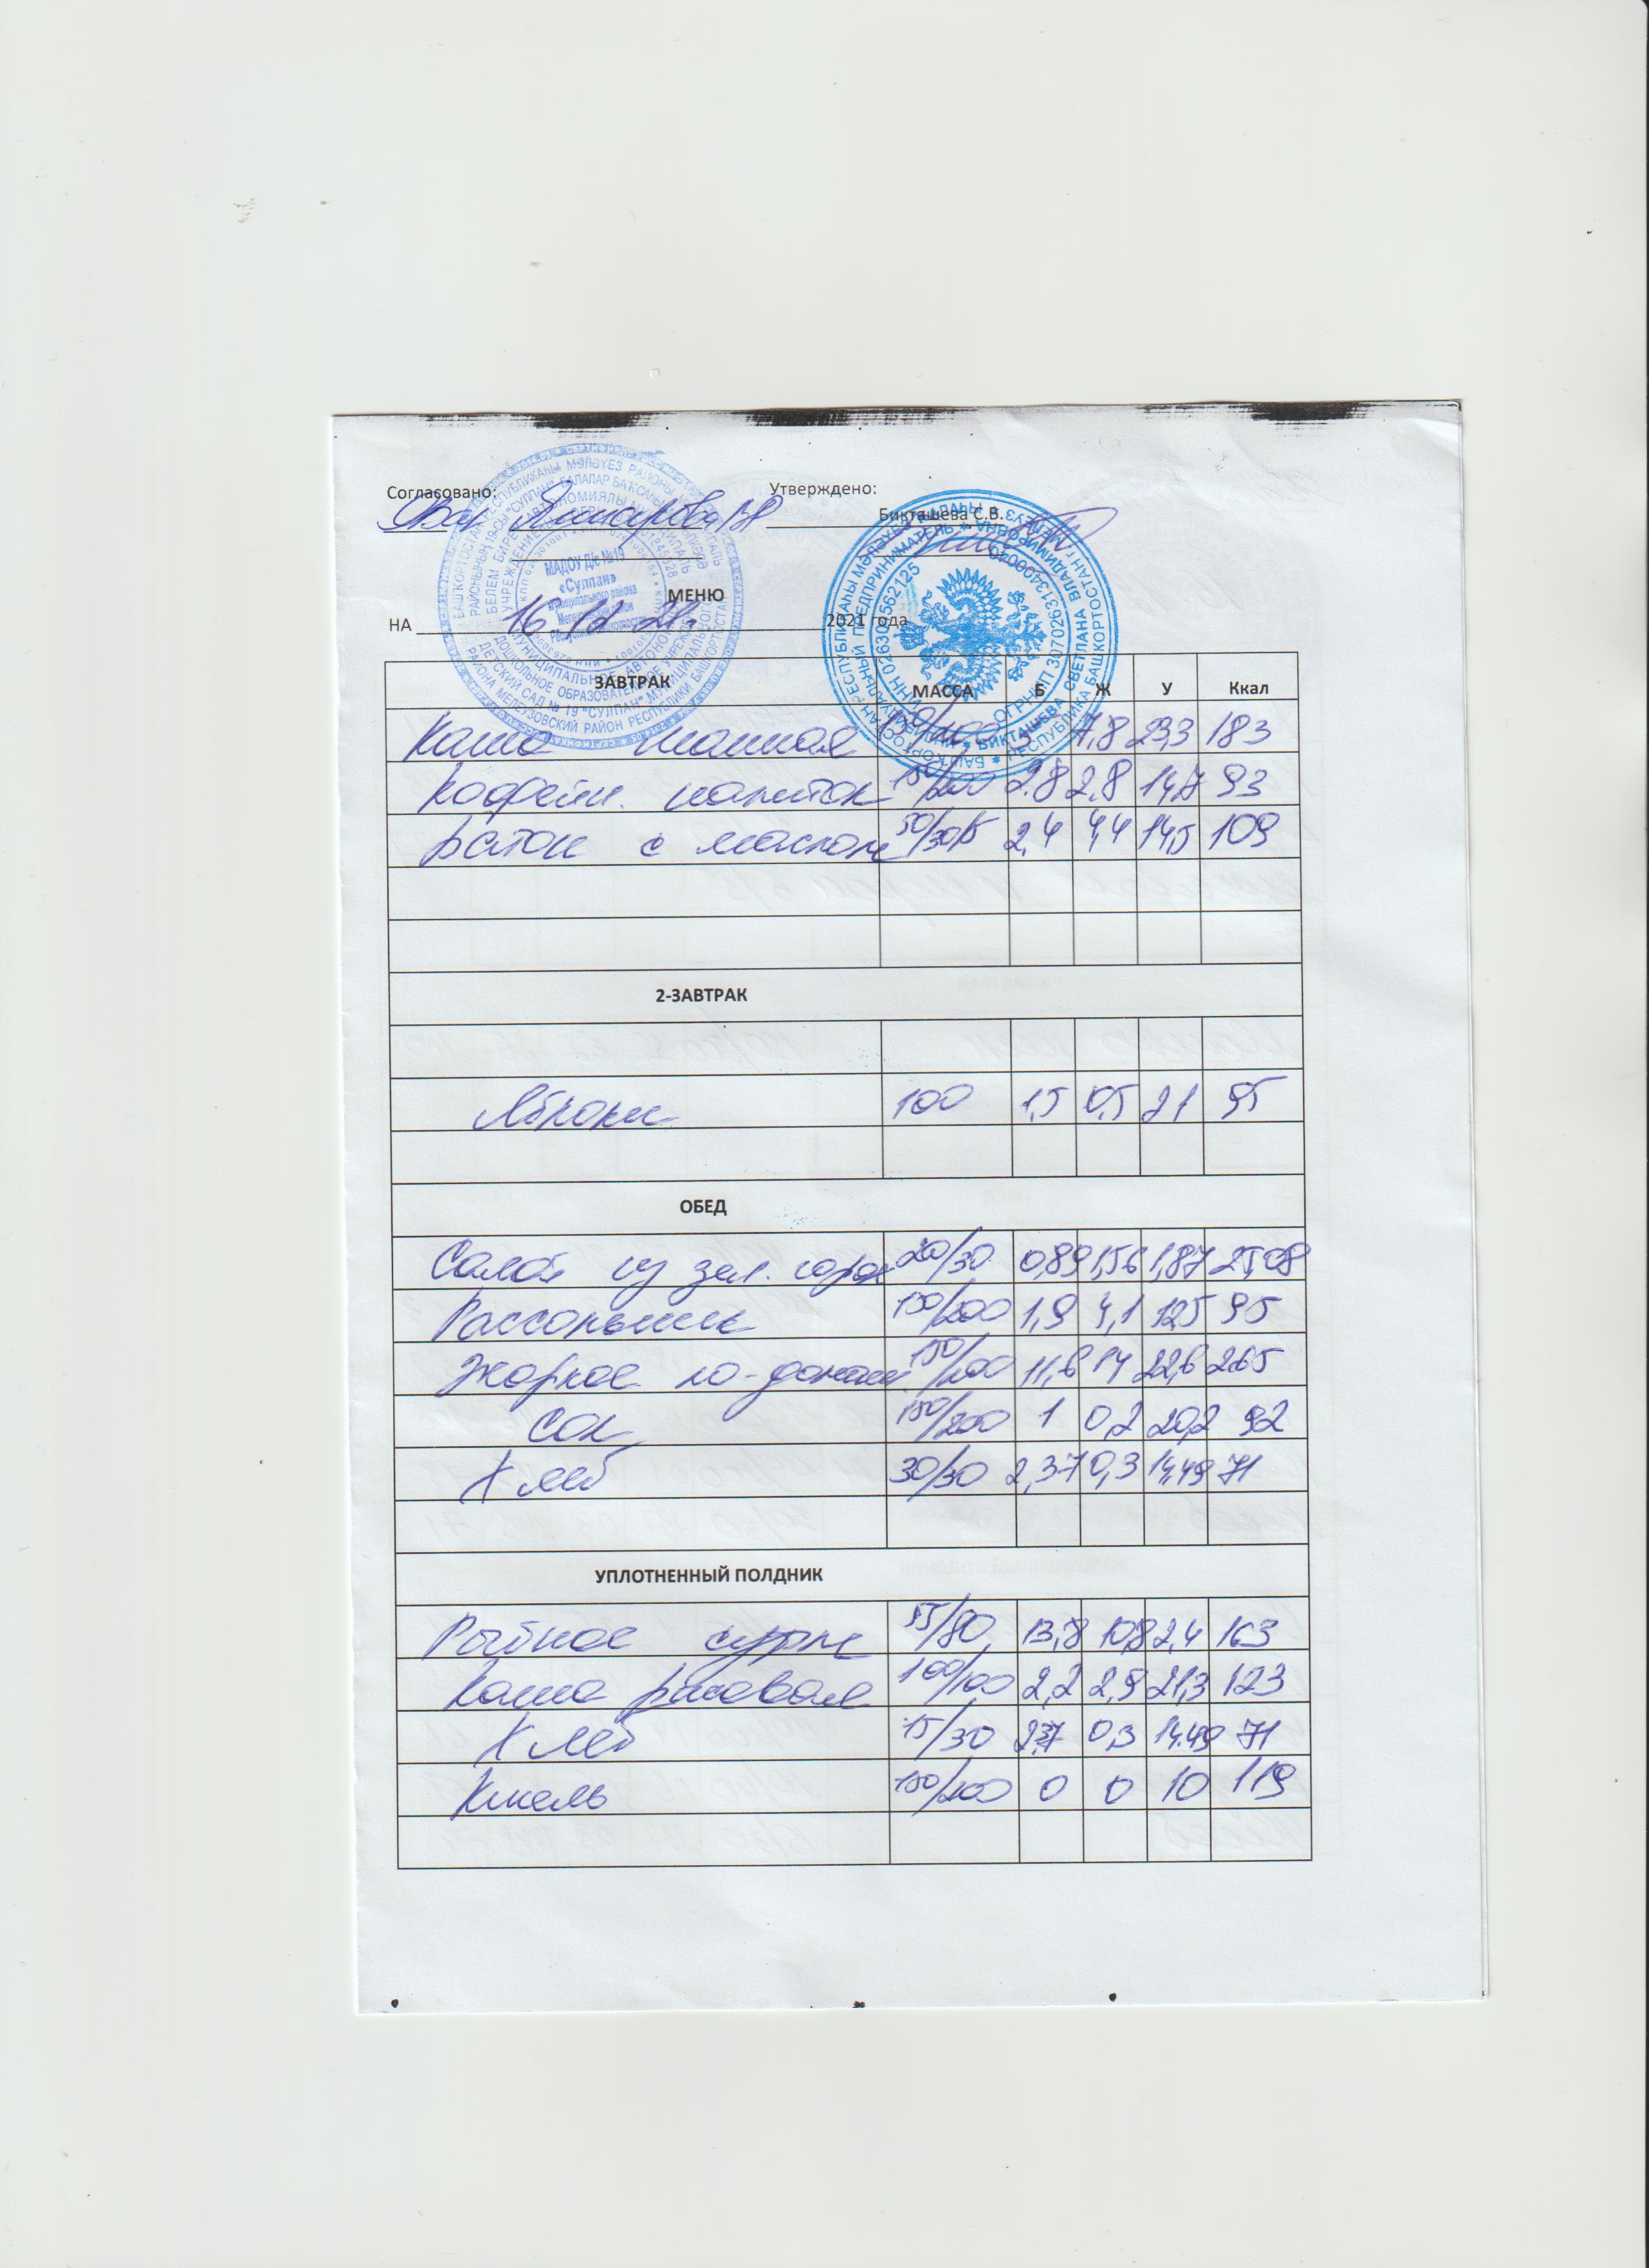 Согласовано:
Утверждено:
Бикташева С.В.
МАДОУ Д/с №19
«Сулпан»
муниципального района
Мелеузовский район
ИНДИВИДУАЛЬНЫЙ ПРЕДПРИНИМАТЕЛЬ
БИКТАШЕВА СВЕТЛАНА ВЛАДИМИРОВНА
ИНН 026301562125
МЕНЮ
НА 16.12 21г. 2021 года
ЗАВТРАК МАССА Б Ж У Ккал
Каша манная 150/200 7,8 23,3 183
Кофейн. напиток 150/200 2.8 2,8 14,7 93
Батон с маслом 50/30/5 2,4 4,4 14,5 109
2-ЗАВТРАК
Яблоки 100 1,5 0,5 21 95
ОБЕД
Салат из зел. горох 20/30 0,89 1,56 1,87 25,08
Рассольник 150/200 1,9 4,1 12,5 95
Жаркое по-домаш. 150/200 11,6 14 22,6 265
Сок 150/200 1 0,2 20,2 92
Хлеб 30/30 2,37 0,3 14,49 71
УПЛОТНЕННЫЙ ПОЛДНИК
Рыбное суфле 55/80 13,8 10,8 2,4 163
Каша рисовая 100/100 2,2 2,9 21,3 123
Хлеб 15/30 2,37 0,3 14.49 71
Кисель 150/200 0 0 10 119